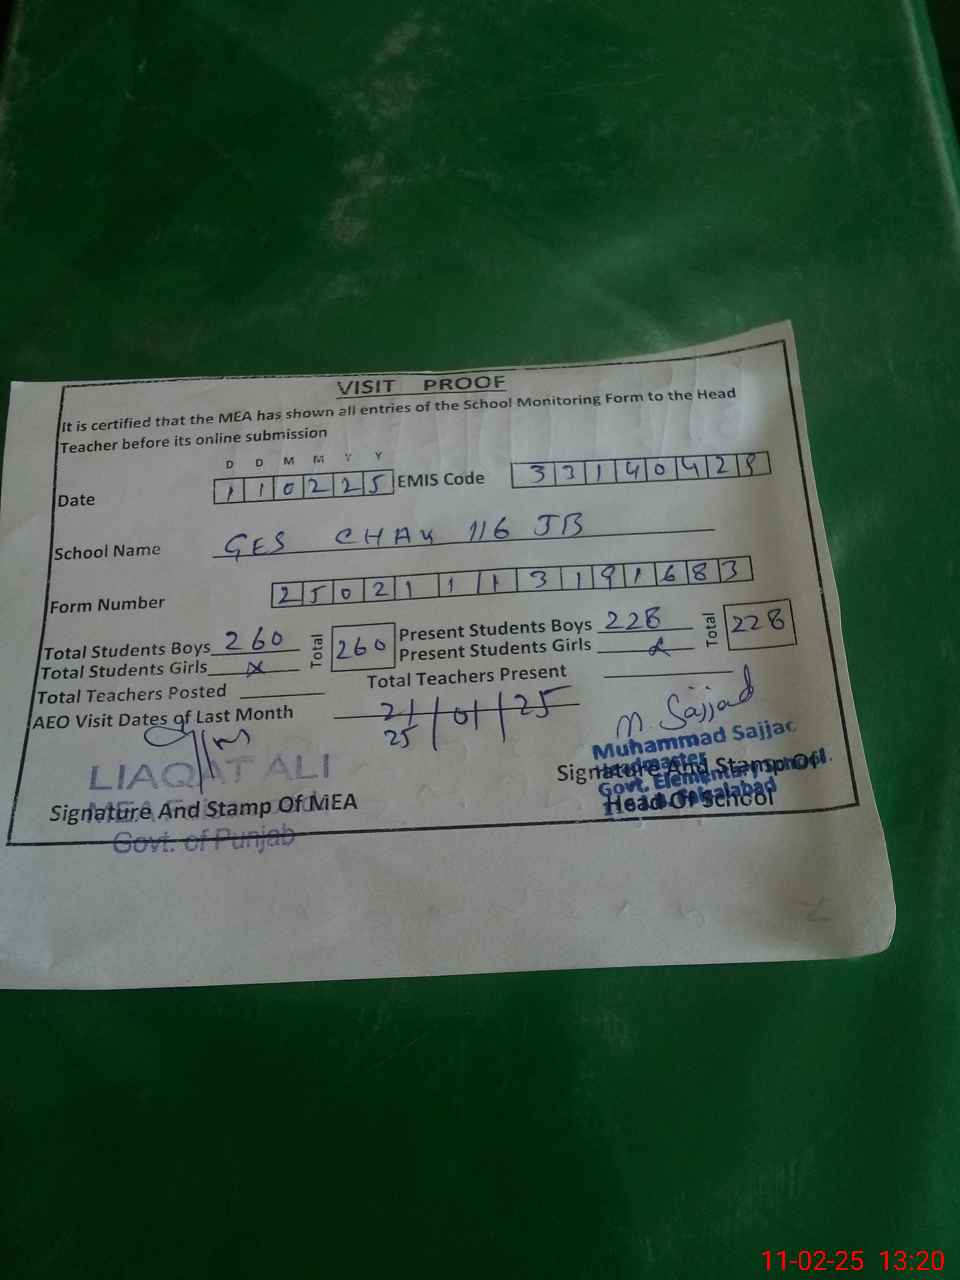 VISIT PROOF
It is certified that the MEA has shown all entries of the School Monitoring Form to the Head
Teacher before its online submission
D D M M Y Y
Date 110225 EMIS Code 33140428
School Name GES CHAK 116 JB
Form Number 25021113191683
Total Students Boys 260 Total 260 Present Students Boys 228 Total 228
Total Students Girls x Present Students Girls x
Total Teachers Posted Total Teachers Present
AEO Visit Dates of Last Month 21/01/25
25
M. Sajjad
LIAQAT ALI
MEA
Govt. of Punjab
Signature And Stamp Of MEA
Muhammad Sajjad
Headmaster
Govt. Elementary School
Faisalabad
Signature And Stamp Of
Head Of School
11-02-25 13:20